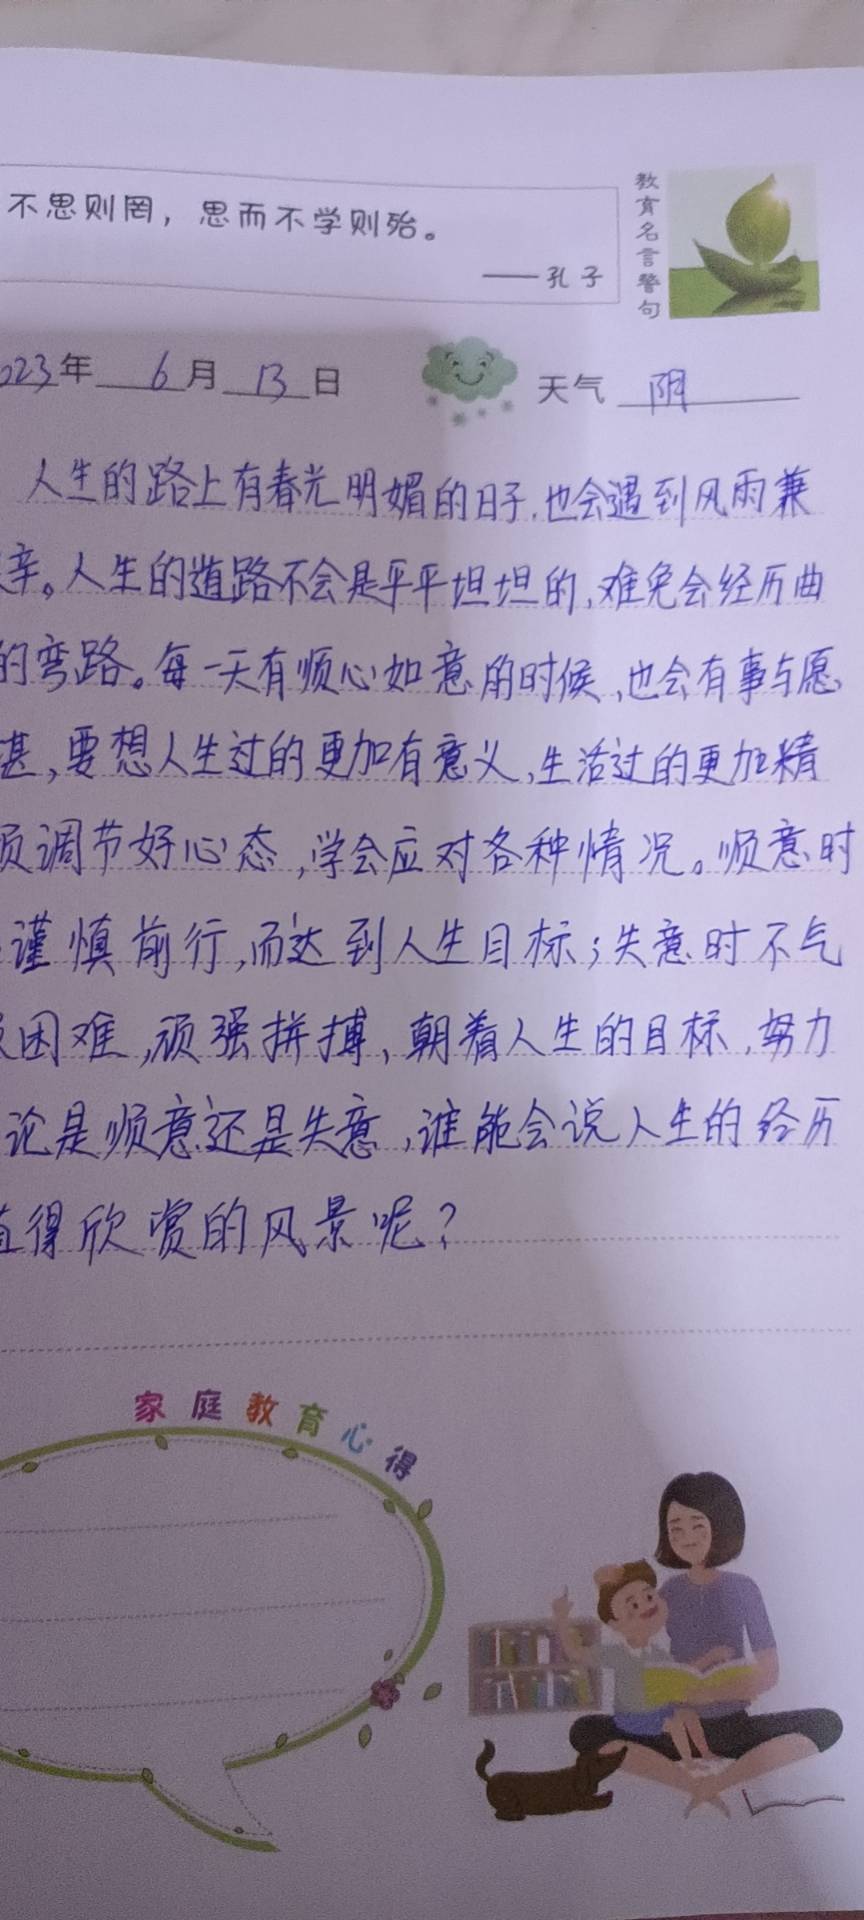 不思则罔，思而不学则殆。
——孔子
教育名言警句
023年 6月 13日 天气 阴
人生的路上有春光明媚的日子,也会遇到风雨兼
辛。人生的道路不会是平平坦坦的,难免会经历曲
的弯路。每一天有顺心如意的时候,也会有事与愿
甚,要想人生过的更加有意义,生活过的更加精
须调节好心态,学会应对各种情况。顺意时
谨慎前行,而达到人生目标;失意时不气
困难,顽强拼搏,朝着人生的目标,努力
论是顺意还是失意,谁能会说人生的经历
值得欣赏的风景呢?
家庭教育心得